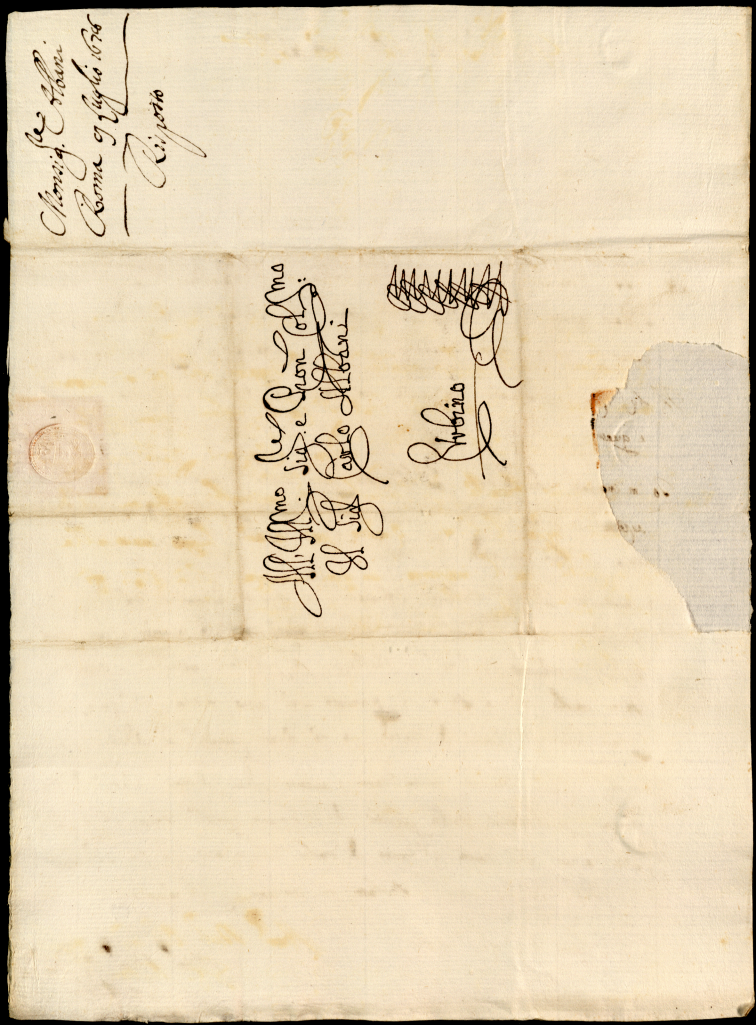 Monsig.le Albani
Roma 9 Luglio 1676
Risposto
All' Ill.mo Sig.e Pron Col.mo
Il Sig.
Carlo Albani
Urbino